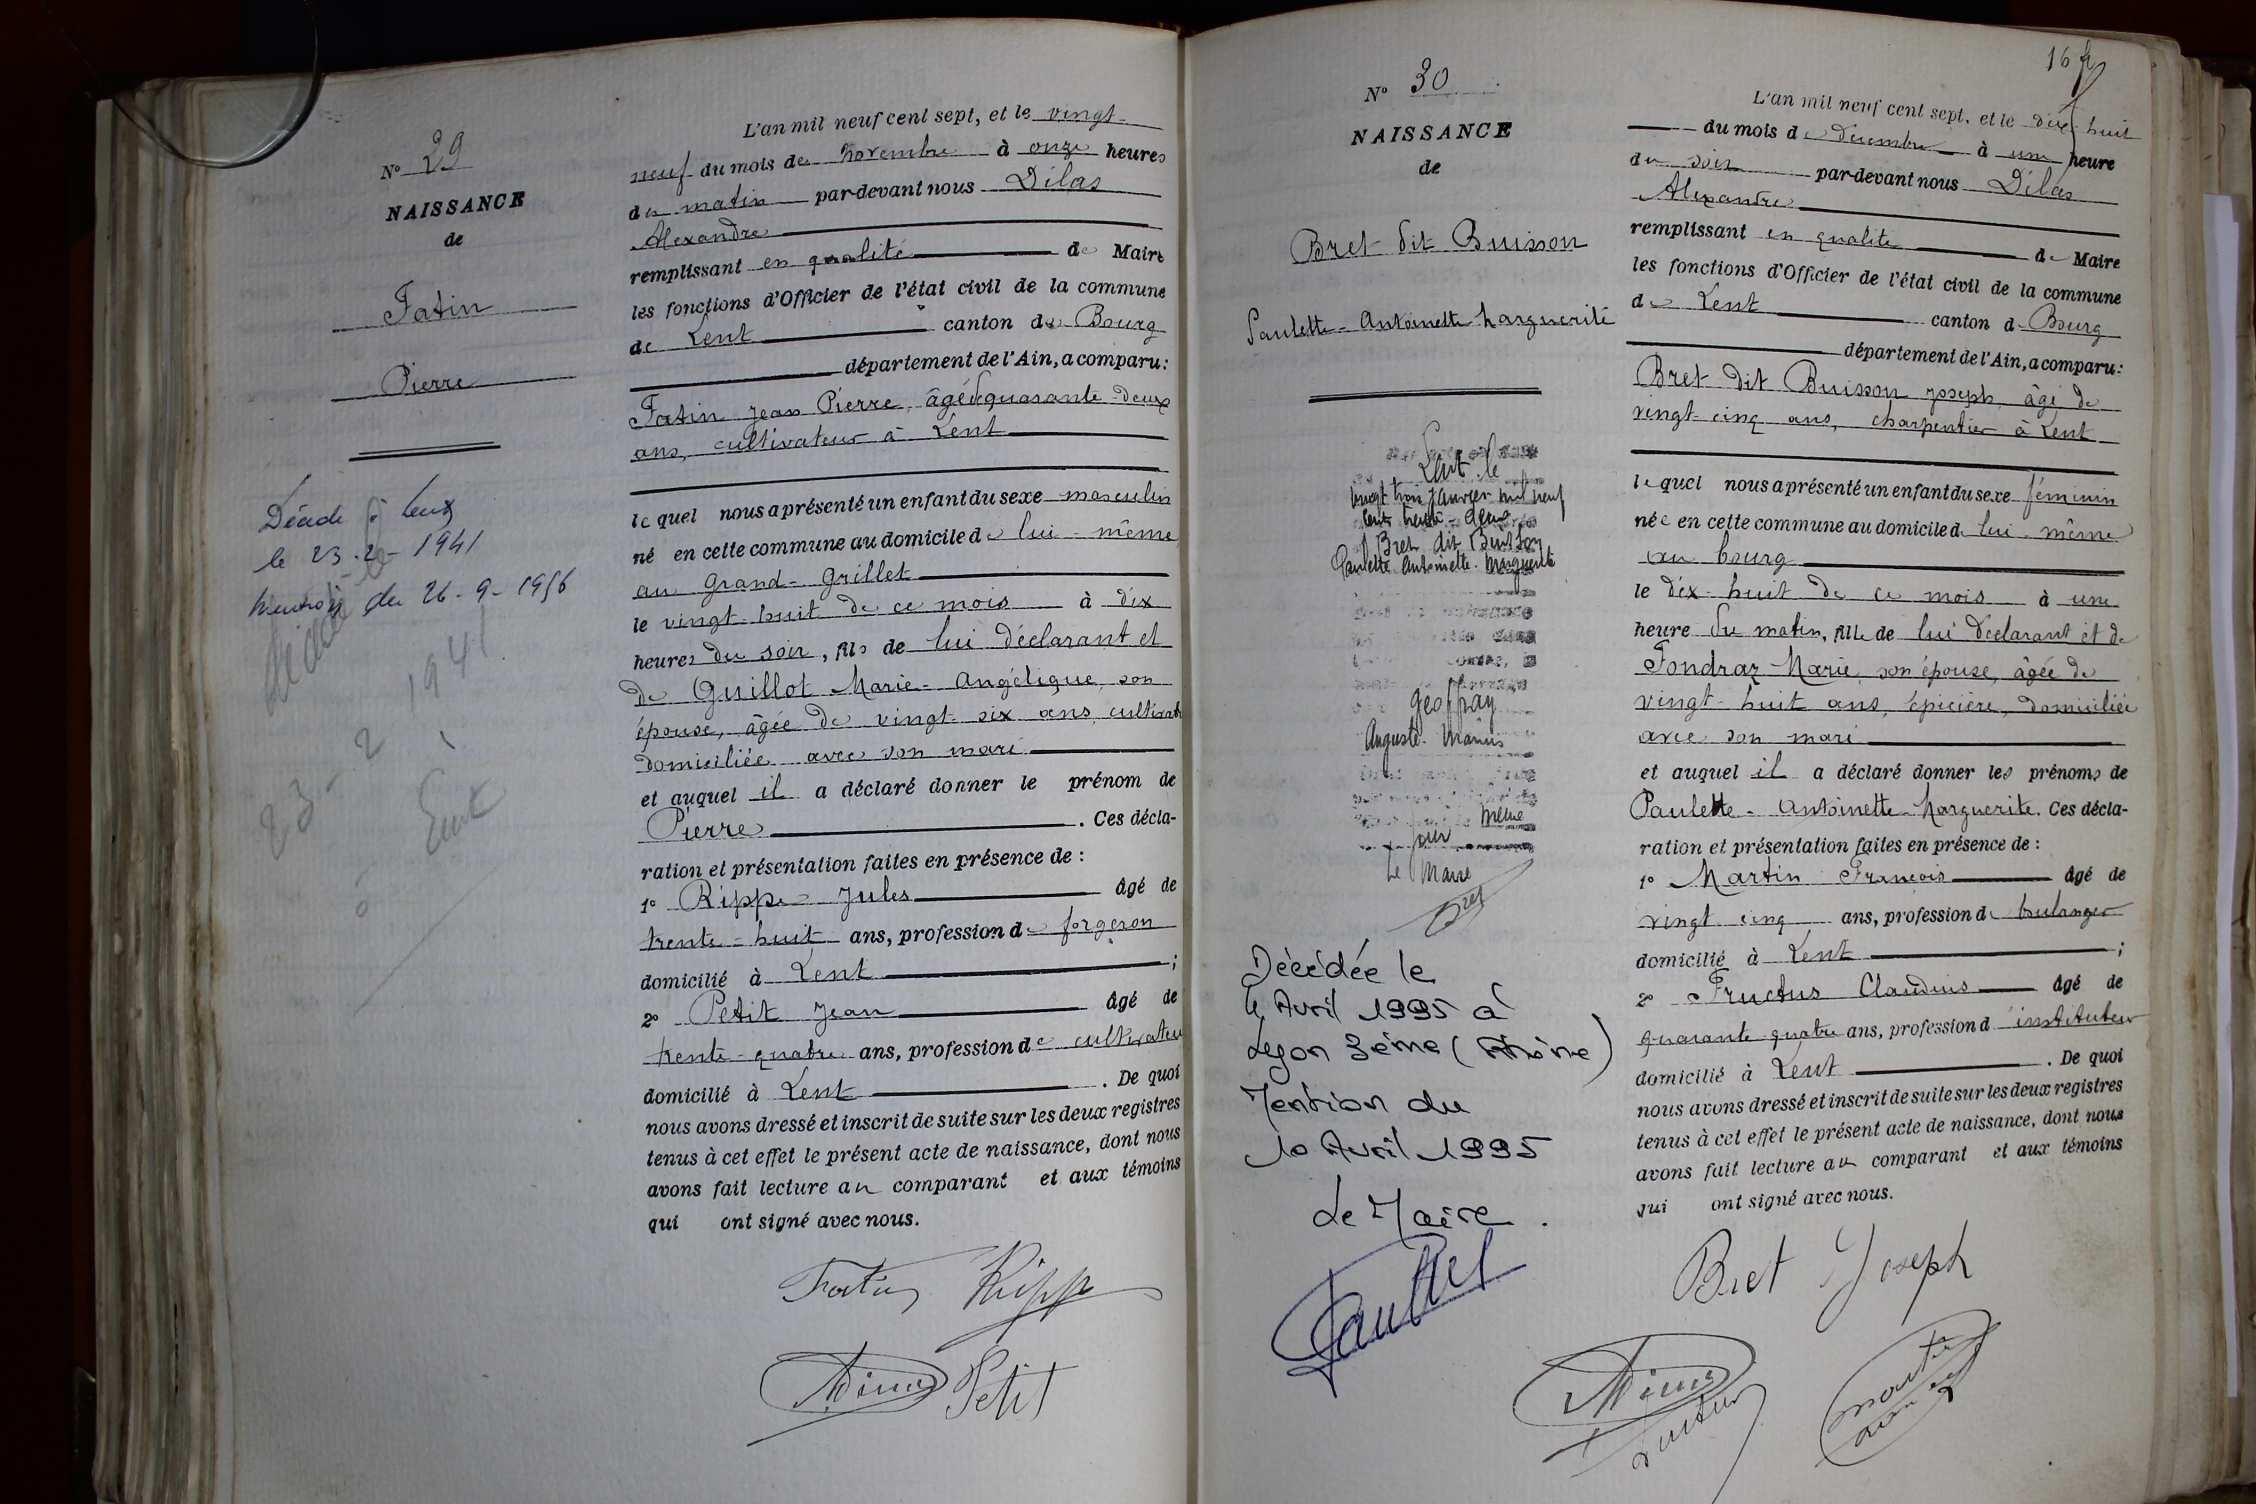 N° 29
NAISSANCE
de
Fatin
Pierre
Décédé à Lent
le 23-2-1941
Mention du 26-9-1956
décédé le
23-2 1941
à
Lent
L'an mil neuf cent sept, et le vingt-
neuf du mois de novembre à onze heures
du matin par-devant nous Dilas
Alexandre
remplissant en qualité de Maire
les fonctions d'Officier de l'état civil de la commune
de Lent canton de Bourg
département de l'Ain, a comparu:
Fatin Jean Pierre, âgé de quarante-deux
ans, cultivateur à Lent
lequel nous a présenté un enfant du sexe masculin
né en cette commune au domicile de lui-même
au Grand-Grillet
le vingt-huit de ce mois à dix
heures du soir, fils de lui déclarant et
de Guillot Marie-Angélique, son
épouse, âgée de vingt-six ans, cultivat
domiciliée avec son mari
et auquel il a déclaré donner le prénom de
Pierre. Ces décla-
ration et présentation faites en présence de :
1° Rippe Jules âgé de
trente-huit ans, profession de forgeron
domicilié à Lent ;
2° Petit Jean âgé de
trente-quatre ans, profession de cultivateu
domicilié à Lent. De quoi
nous avons dressé et inscrit de suite sur les deux registres
tenus à cet effet le présent acte de naissance, dont nous
avons fait lecture au comparant et aux témoins
qui ont signé avec nous.
Fatin Rippe
Petit
16
N° 30
NAISSANCE
de
Bret dit Buisson
Paulette-Antoinette Marguerite
Lent le
vingt trois Janvier mil neuf
cent trente-deux
Bret dit Buisson
Paulette Antoinette-Marguerite
Geoffray
Auguste Marius
même
jour
Le Maire
Bret
Décédée le
4 Avril 1995 à
Lyon 3ème (Rhône)
Mention du
10 Avril 1995
Le Maire.
L'an mil neuf cent sept, et le dix-huit
du mois de décembre à une heure
du soir par-devant nous Dilas
Alexandre
remplissant en qualité de Maire
les fonctions d'Officier de l'état civil de la commune
de Lent canton de Bourg
département de l'Ain, a comparu:
Bret dit Buisson Joseph, âgé de
vingt-cinq ans, charpentier à Lent
lequel nous a présenté un enfant du sexe féminin
née en cette commune au domicile de lui-même
au bourg
le dix-huit de ce mois à une
heure du matin, fille de lui déclarant et de
Fondraz Marie, son épouse, âgée de
vingt-huit ans, épicière, domiciliée
avec son mari
et auquel il a déclaré donner les prénoms de
Paulette-Antoinette-Marguerite. Ces décla-
ration et présentation faites en présence de :
1° Martin François âgé de
vingt cinq ans, profession de boulanger
domicilié à Lent ;
2° Fructus Claudius âgé de
quarante-quatre ans, profession d'instituteur
domicilié à Lent. De quoi
nous avons dressé et inscrit de suite sur les deux registres
tenus à cet effet le présent acte de naissance, dont nous
avons fait lecture au comparant et aux témoins
qui ont signé avec nous.
Bret Joseph